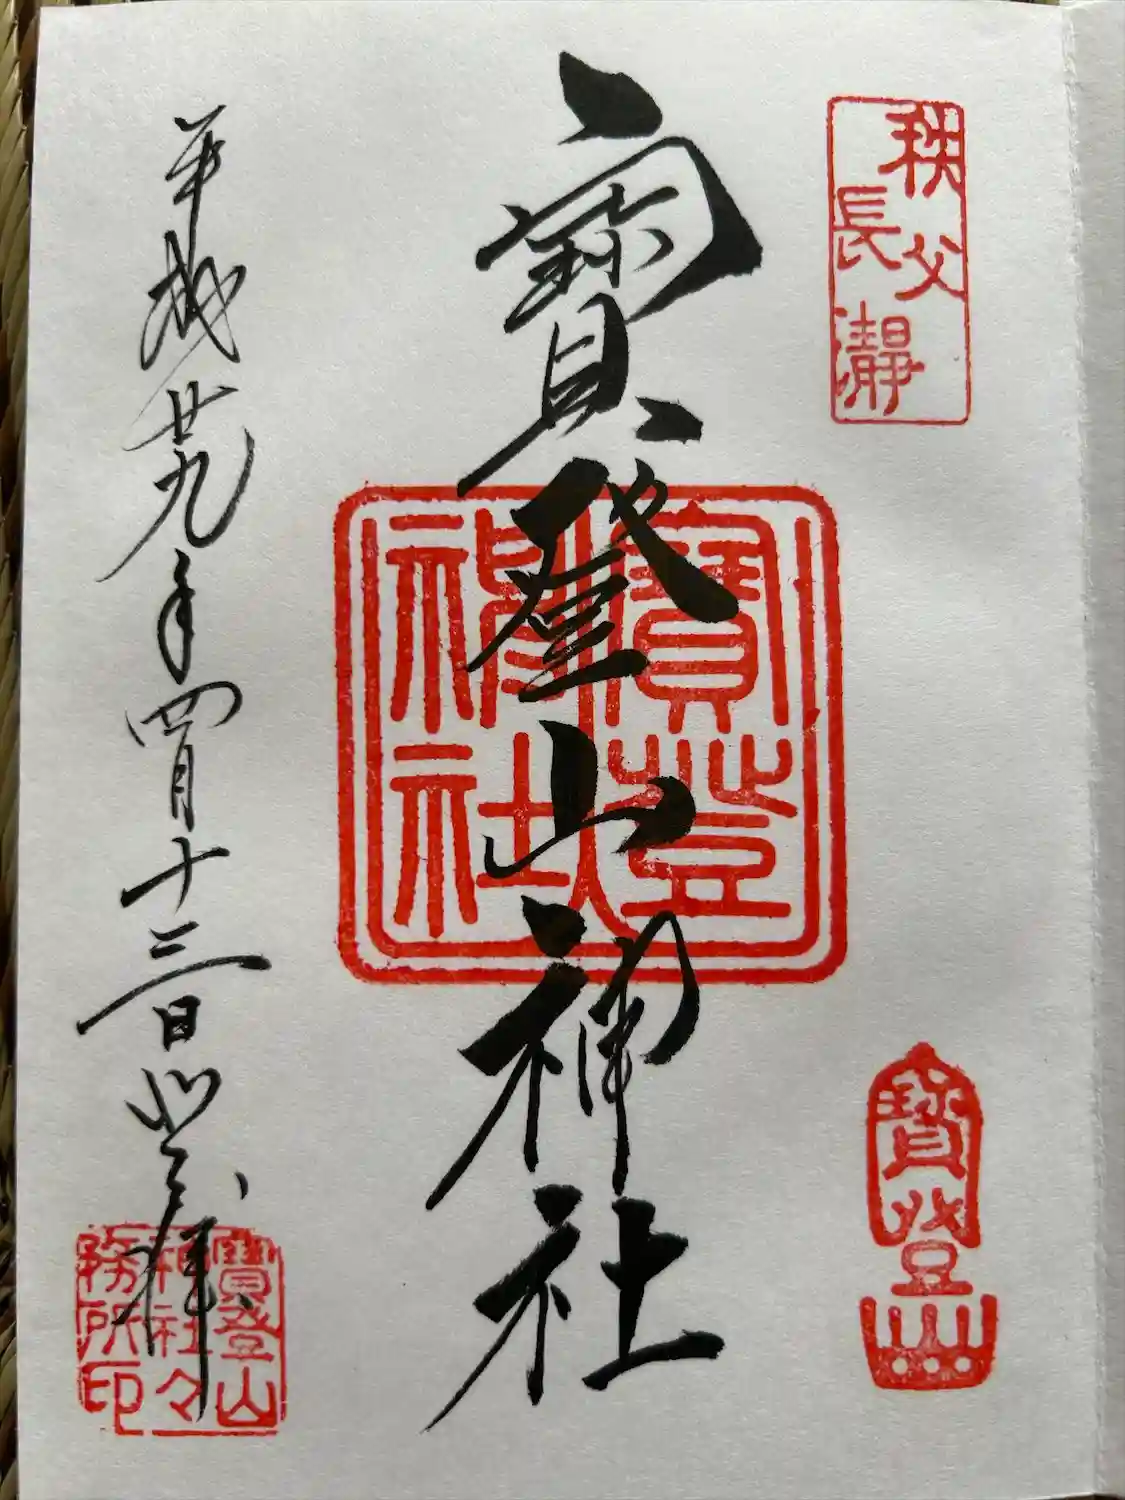 秩父
長瀞
寶登山神社
寶登
神社
寶登山
平成廿九年四月十三日登拜
寶登山
神社々
務所印